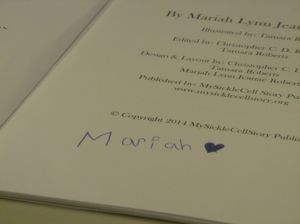 By Mariah Lynn
Illustrated by: Tamara
Edited by: Christopher C. D.
Tamara Roberts
Design & Layout by: Christopher C.
Tamara Roberts
Mariah Lynn Jeanae Roberts
Published by: MySickleCellStory
www.mysicklecellstory.org
© Copyright 2014 MySickleCellStory
Mariah ♥